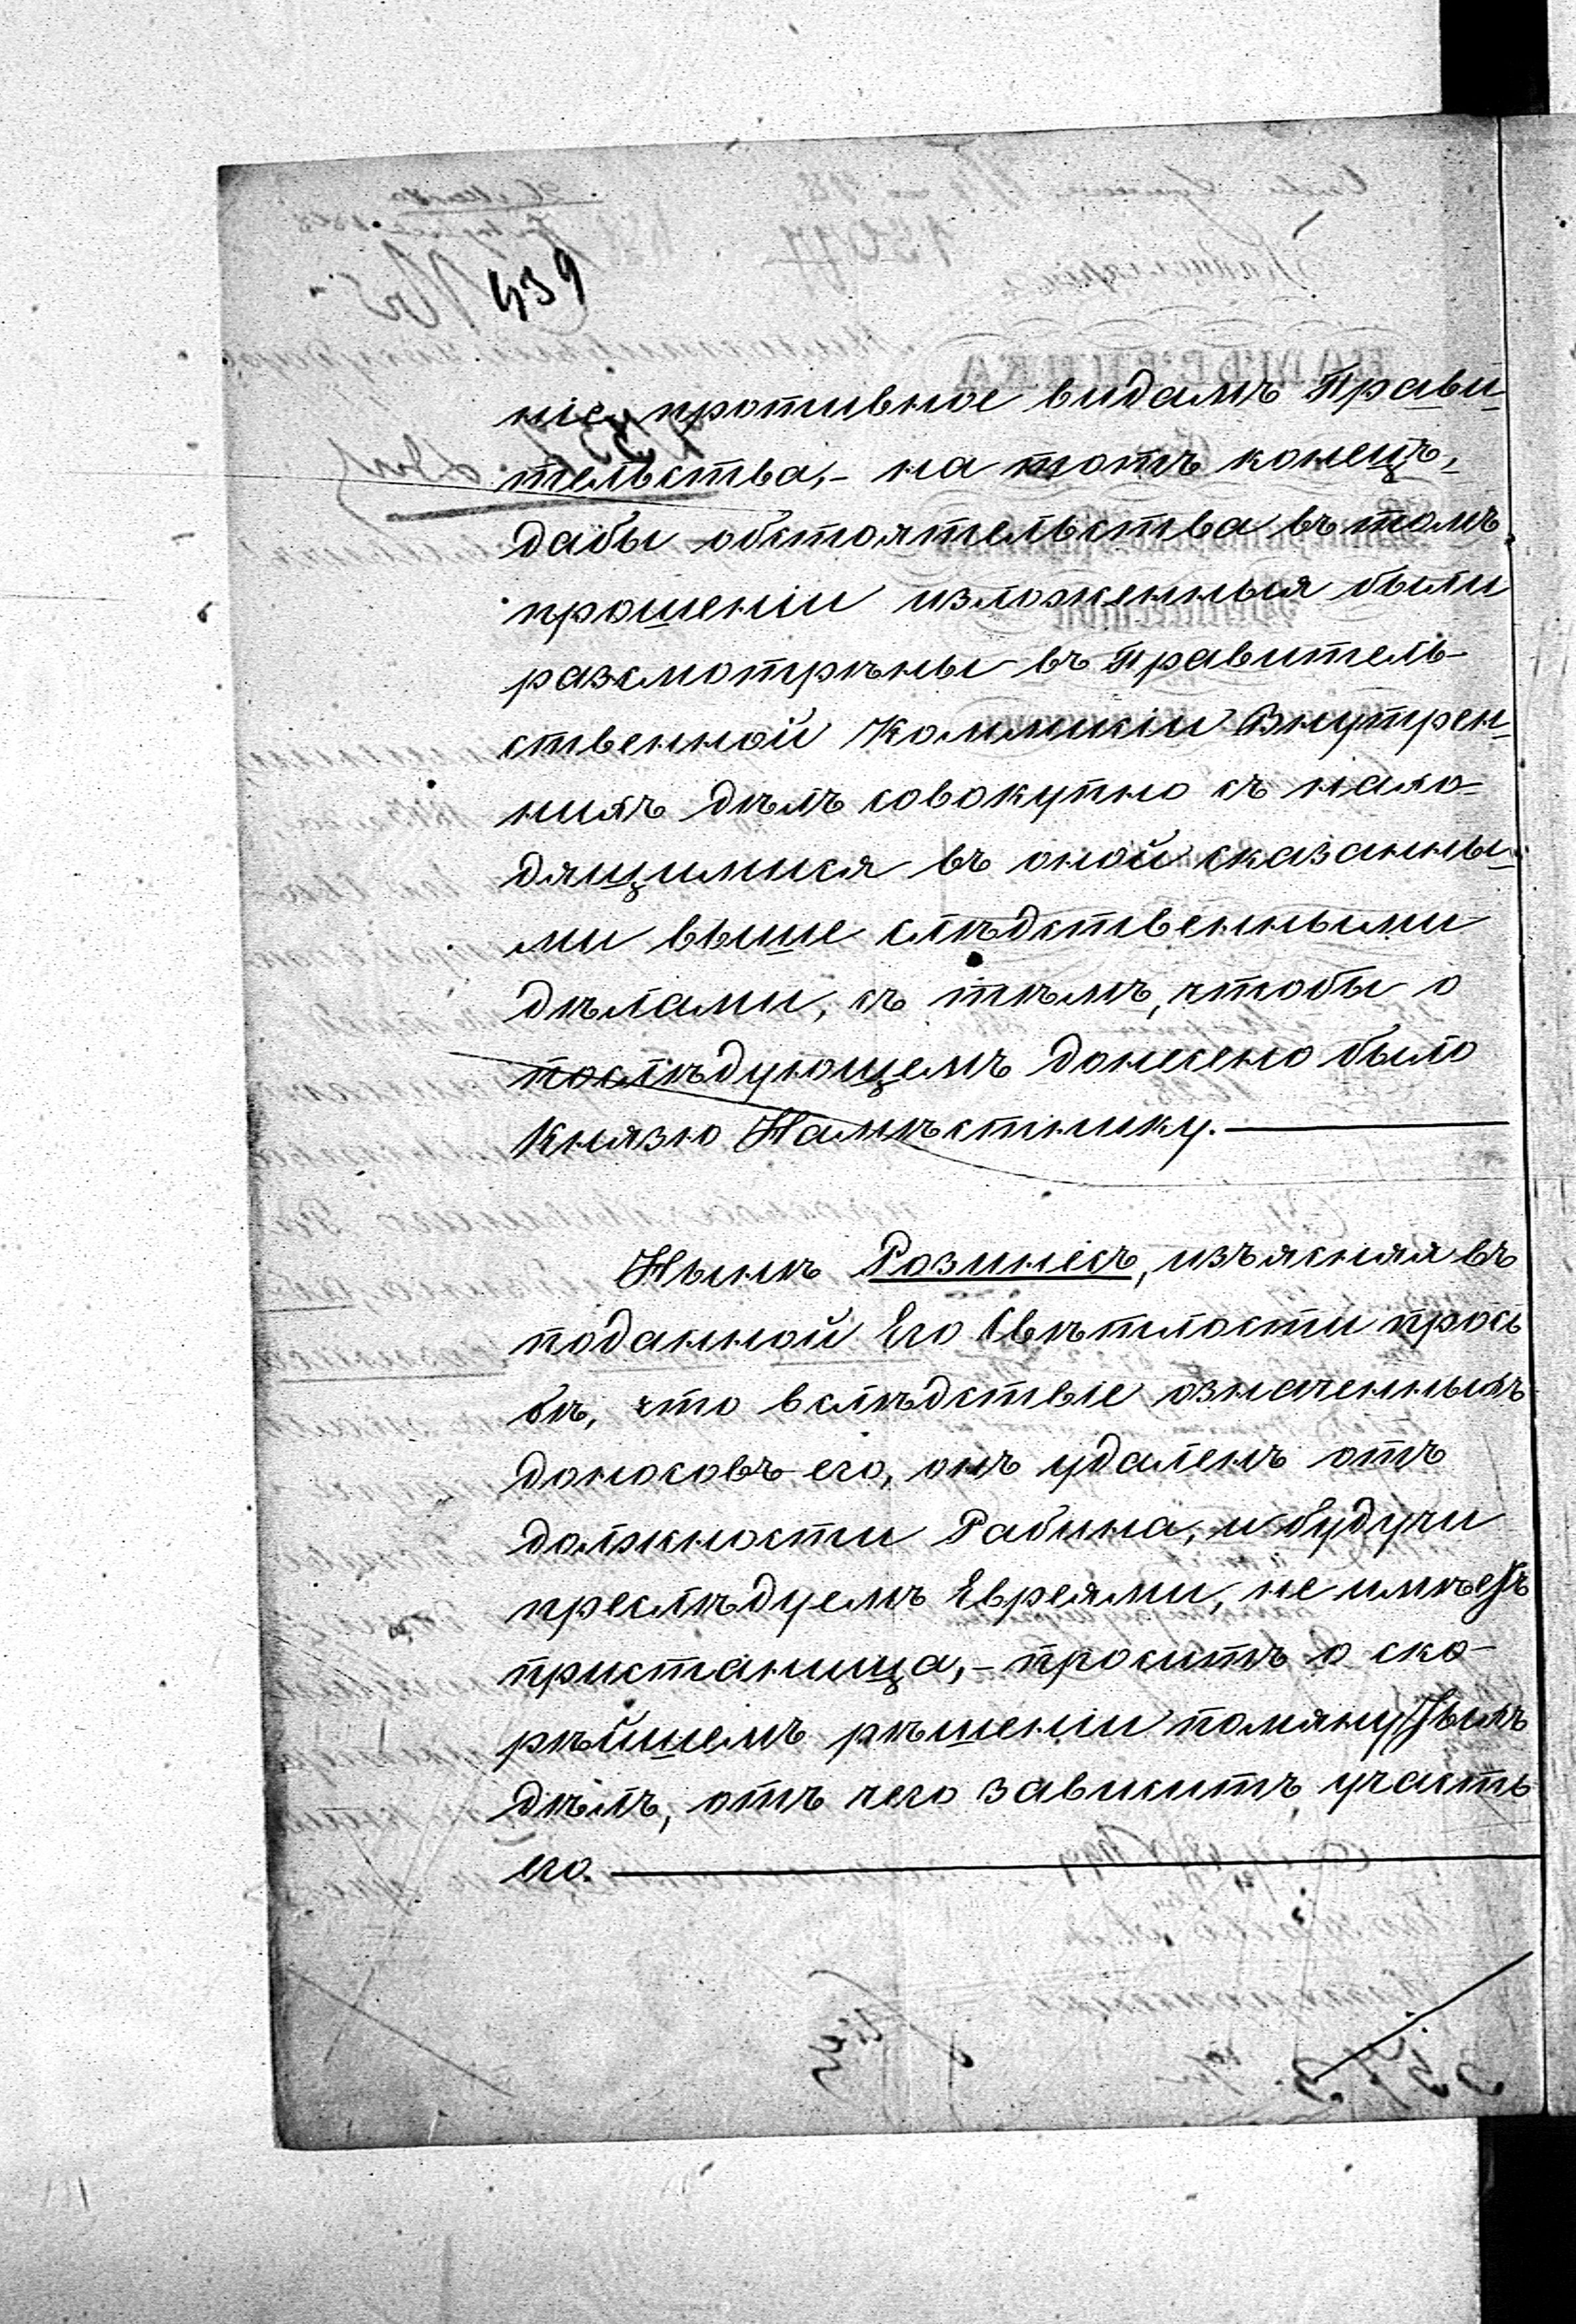 439
ніе противное видамъ Прави-
тельства,- на тотъ конецъ,
дабы обстоятельства въ томъ
прошеніи изложенныя были
разсмотрѣны въ Правитель-
ственной Коммисіи Внутрен-
нихъ дѣлъ совокупно съ нахо-
дящимися въ оной сказанны-
ми выше слѣдственными
дѣлами, съ тѣмъ, чтобы о
послѣдующемъ донесено было
Князю Намѣстнику.
Нынѣ Розинесъ, изъясняя въ
поданной Его Свѣтлости прось
бѣ, что вслѣдствіе означенныхъ
доносовъ его, онъ удаленъ отъ
должности Рабина, и будучи
преслѣдуемъ Евреями, не имѣетъ
пристанища,- проситъ о ско-
рѣйшемъ рѣшеніи помянутыхъ
дѣлъ, отъ чего зависитъ участь
его.